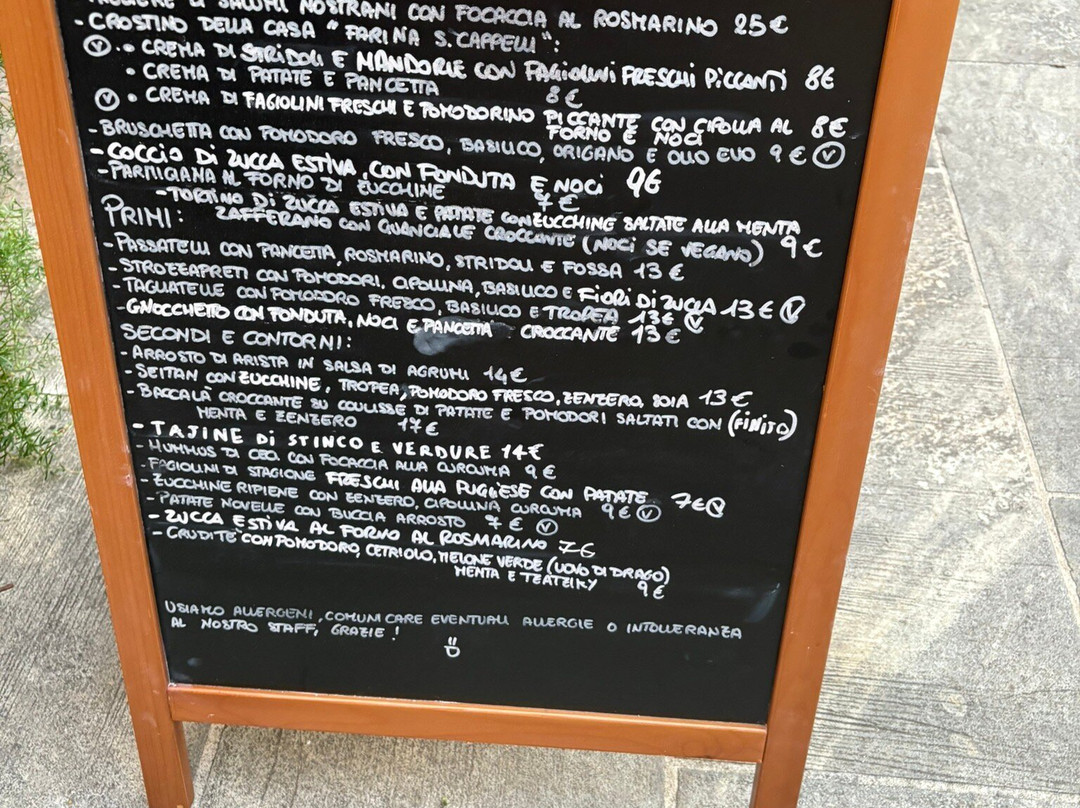 TAGLIERE DI SALUMI NOSTRANI CON FOCACCIA AL ROSMARINO 25€
- CROSTINO DELLA CASA "FARINA S. CAPPELLI":
Ⓥ • CREMA DI STRIDOLI E MANDORLE CON FAGIOLINI FRESCHI PICCANTI 8€
• CREMA DI PATATE E PANCETTA 8€
Ⓥ • CREMA DI FAGIOLINI FRESCHI E POMODORINO PICCANTE CON CIPOLLA AL 8€
FORNO E NOCI
- BRUSCHETTA CON POMODORO FRESCO, BASILICO, ORIGANO E OLIO EVO 9€ Ⓥ
- COCCIO DI ZUCCA ESTIVA, CON FONDUTA E NOCI 9€
- PARMIGIANA AL FORNO DI ZUCCHINE 7€
- TORTINO DI ZUCCA ESTIVA E PATATE CON ZUCCHINE SALTATE ALLA MENTA
ZAFFERANO CON GUANCIALE CROCCANTE (NOCI SE VEGANO) 9€
PRIMI:
- PASSATELLI CON PANCETTA, ROSMARINO, STRIDOLI E FOSSA 13€
- STROZZAPRETI CON POMODORI, CIPOLLINA, BASILICO E FIORI DI ZUCCA 13€ Ⓥ
- TAGLIATELLE CON POMODORO FRESCO, BASILICO E TROPEA 13€ Ⓥ
- GNOCCHETTO CON FONDUTA, NOCI E PANCETTA CROCCANTE 13€
SECONDI E CONTORNI:
- ARROSTO DI ARISTA IN SALSA DI AGRUMI 14€
- SEITAN CON ZUCCHINE, TROPEA, POMODORO FRESCO, ZENZERO, SOIA 13€
- BACCALÀ CROCCANTE SU COULISSE DI PATATE E POMODORI SALTATI CON (FINITO)
MENTA E ZENZERO 17€
- TAJINE DI STINCO E VERDURE 14€
- HUMMUS DI CECI CON FOCACCIA ALLA CURCUMA 9€
- FAGIOLINI DI STAGIONE FRESCHI ALLA PUGLIESE CON PATATE 7€ Ⓥ
- ZUCCHINE RIPIENE CON ZENZERO, CIPOLLINA CURCUMA 9€ Ⓥ
- PATATE NOVELLE CON BUCCIA ARROSTO 7€ Ⓥ
- ZUCCA ESTIVA AL FORNO AL ROSMARINO 7€
- CRUDITÈ CON POMODORO, CETRIOLO, MELONE VERDE (UOVO DI DRAGO)
MENTA E TZATZIKY 9€
USIAMO ALLERGENI, COMUNICARE EVENTUALI ALLERGIE O INTOLLERANZA
AL NOSTRO STAFF, GRAZIE!